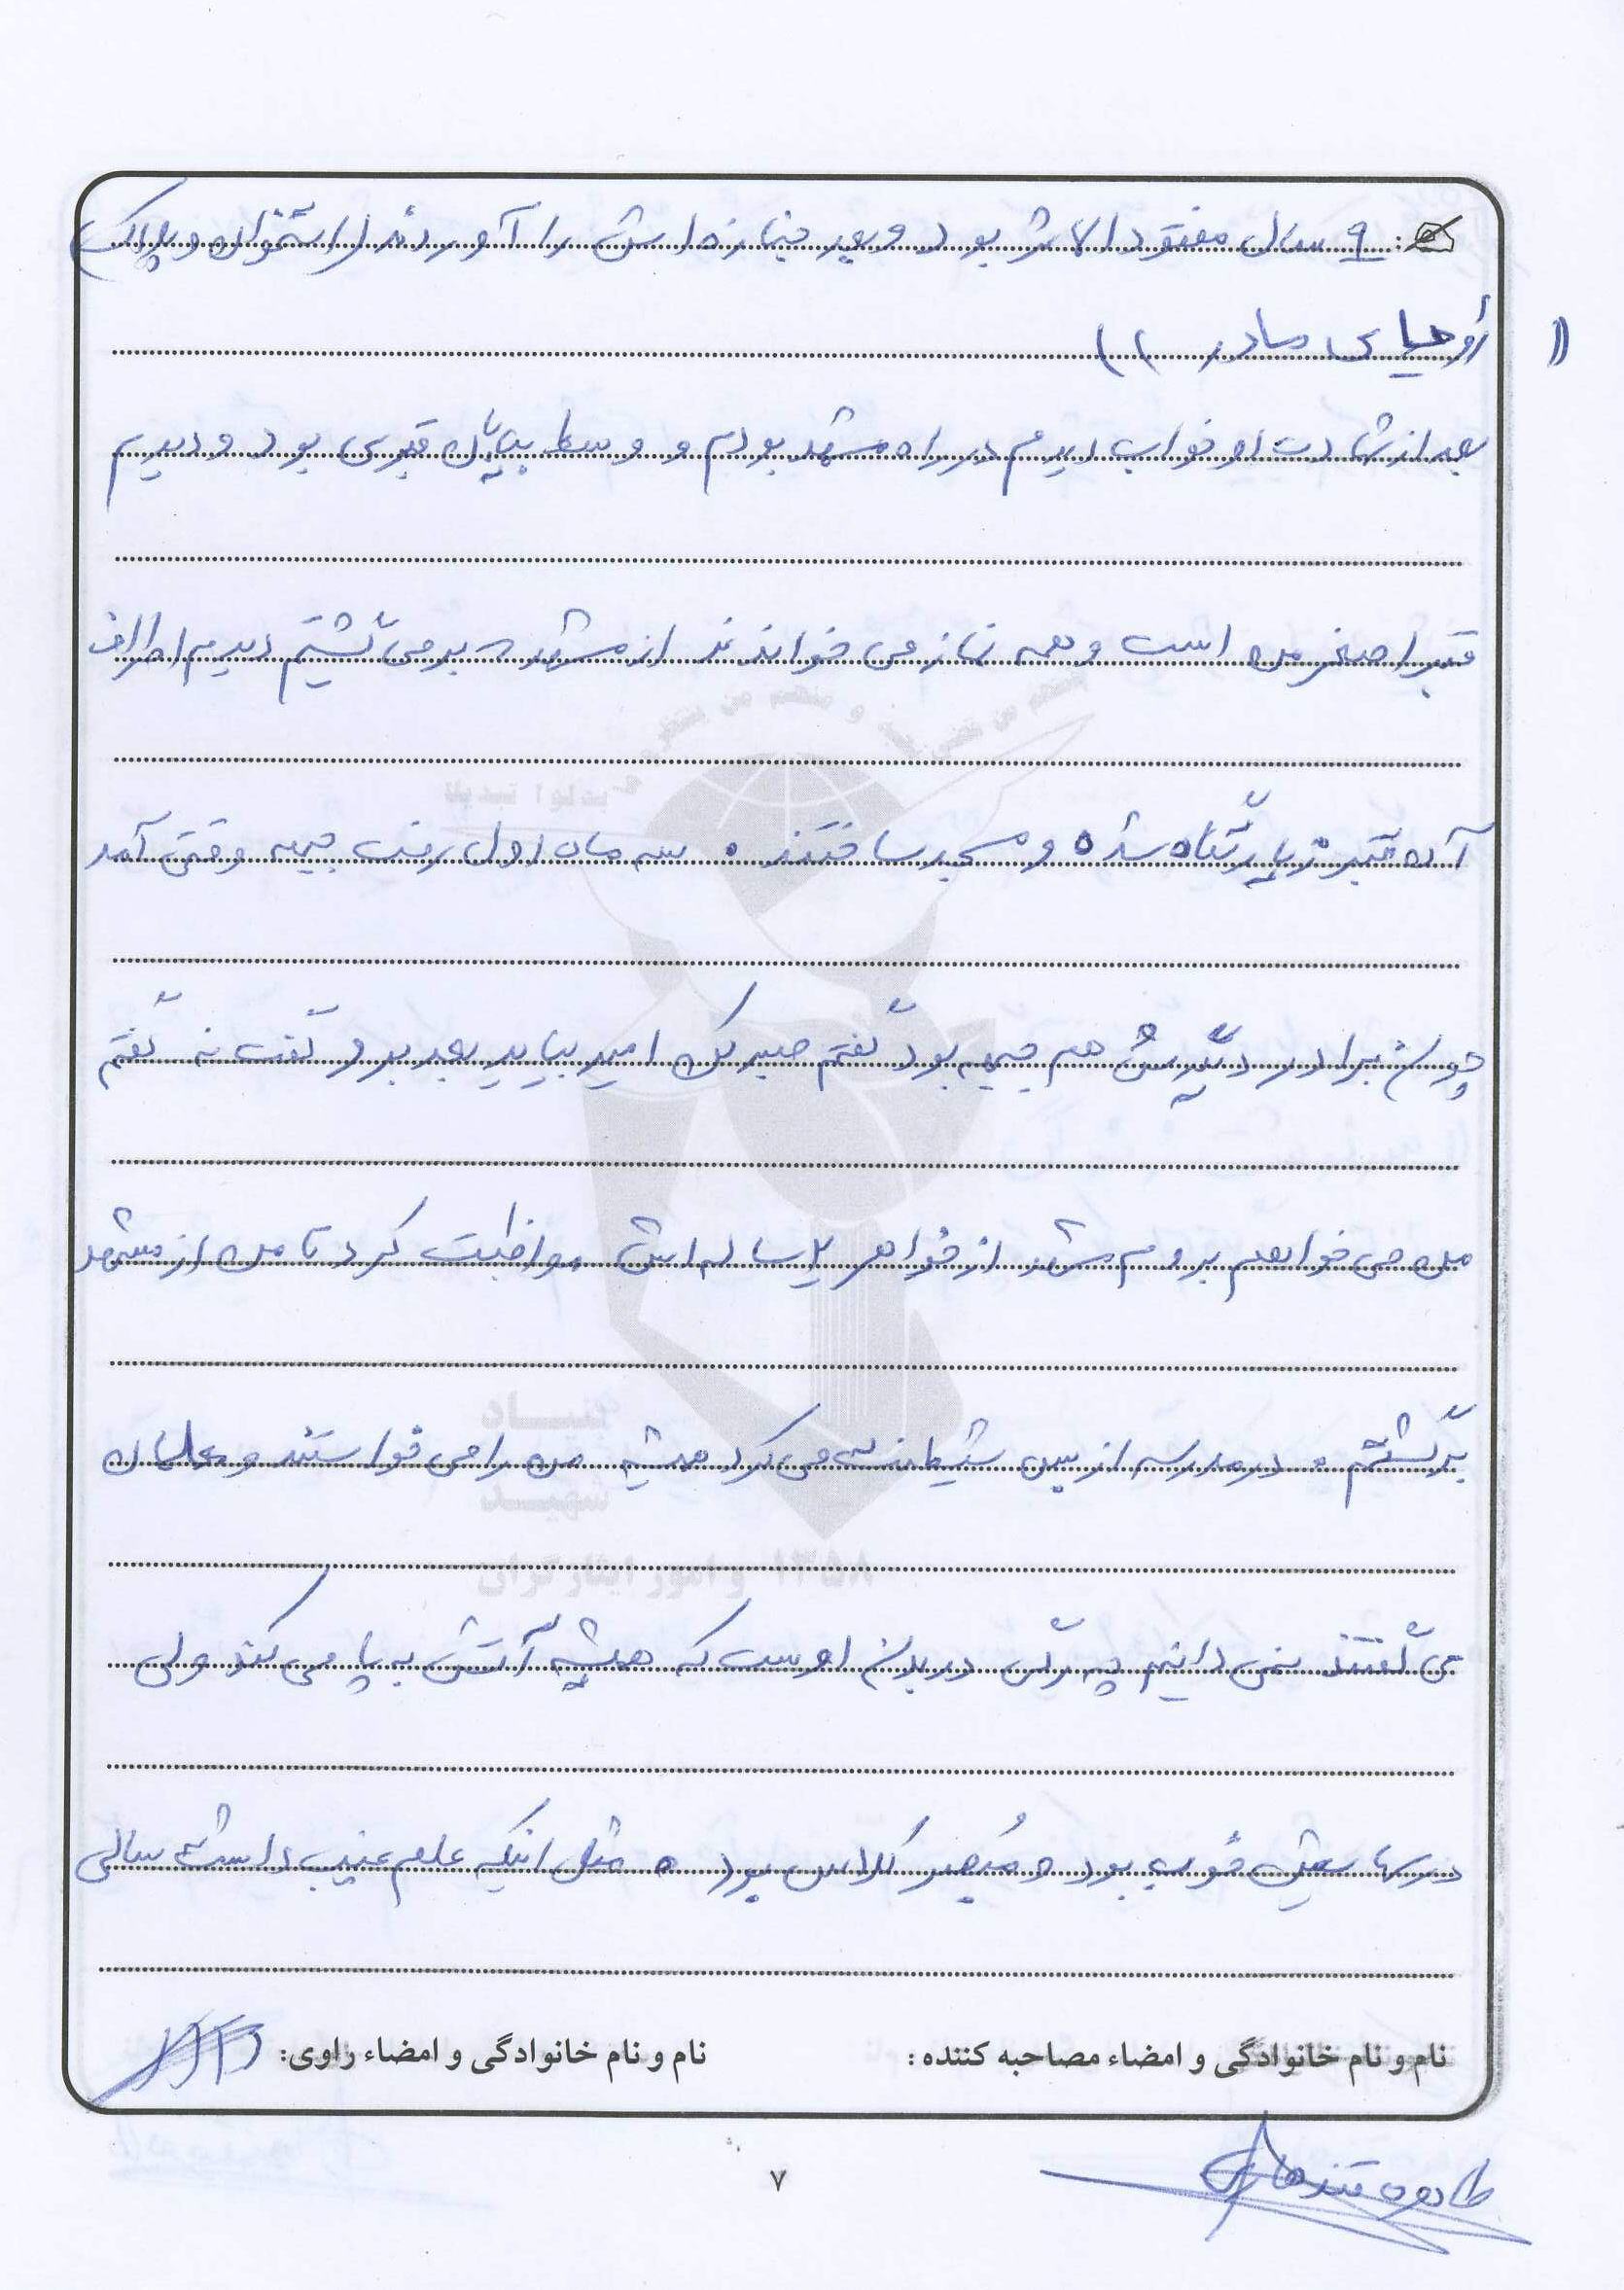 ۹ سال مفقود الاثر بود و بعد جنازه اش را آوردند (استخوان و پلاک)
(( رویای مادر ))
بعد از شهادت او خواب دیدم در راه مشهد بودم و وسط بیابان قبری بود و دیدم
قبر اصغر من است و همه نماز می خواندند از مشهد که بر می گشتیم دیدیم اطراف
آن قبر زیارتگاه شده و مسجد ساختند . سه ماه اول رفت جبهه وقتی آمد
چون برادر دیگرش هم جبهه بود گفتم صبر کن امیر بیاید بعد برو گفت نه گفتم
من می خواهم بروم مشهد از خواهر یکساله اش مواظبت کرد تا من از مشهد
برگشتم . در مدرسه از بس شیطنت می کرد همیشه من را می خواستند و معلمان
می گفتند نمی دانیم چه رگی در بدن اوست که همیشه آتش به پا می کند ولی
درسهایش خوب بود و مُبصر کلاس بود . مثل اینکه علم غیب داشت سالی
نام و نام خانوادگی و امضاء مصاحبه کننده :
نام و نام خانوادگی و امضاء راوی:
طاهره قندهاری
۷